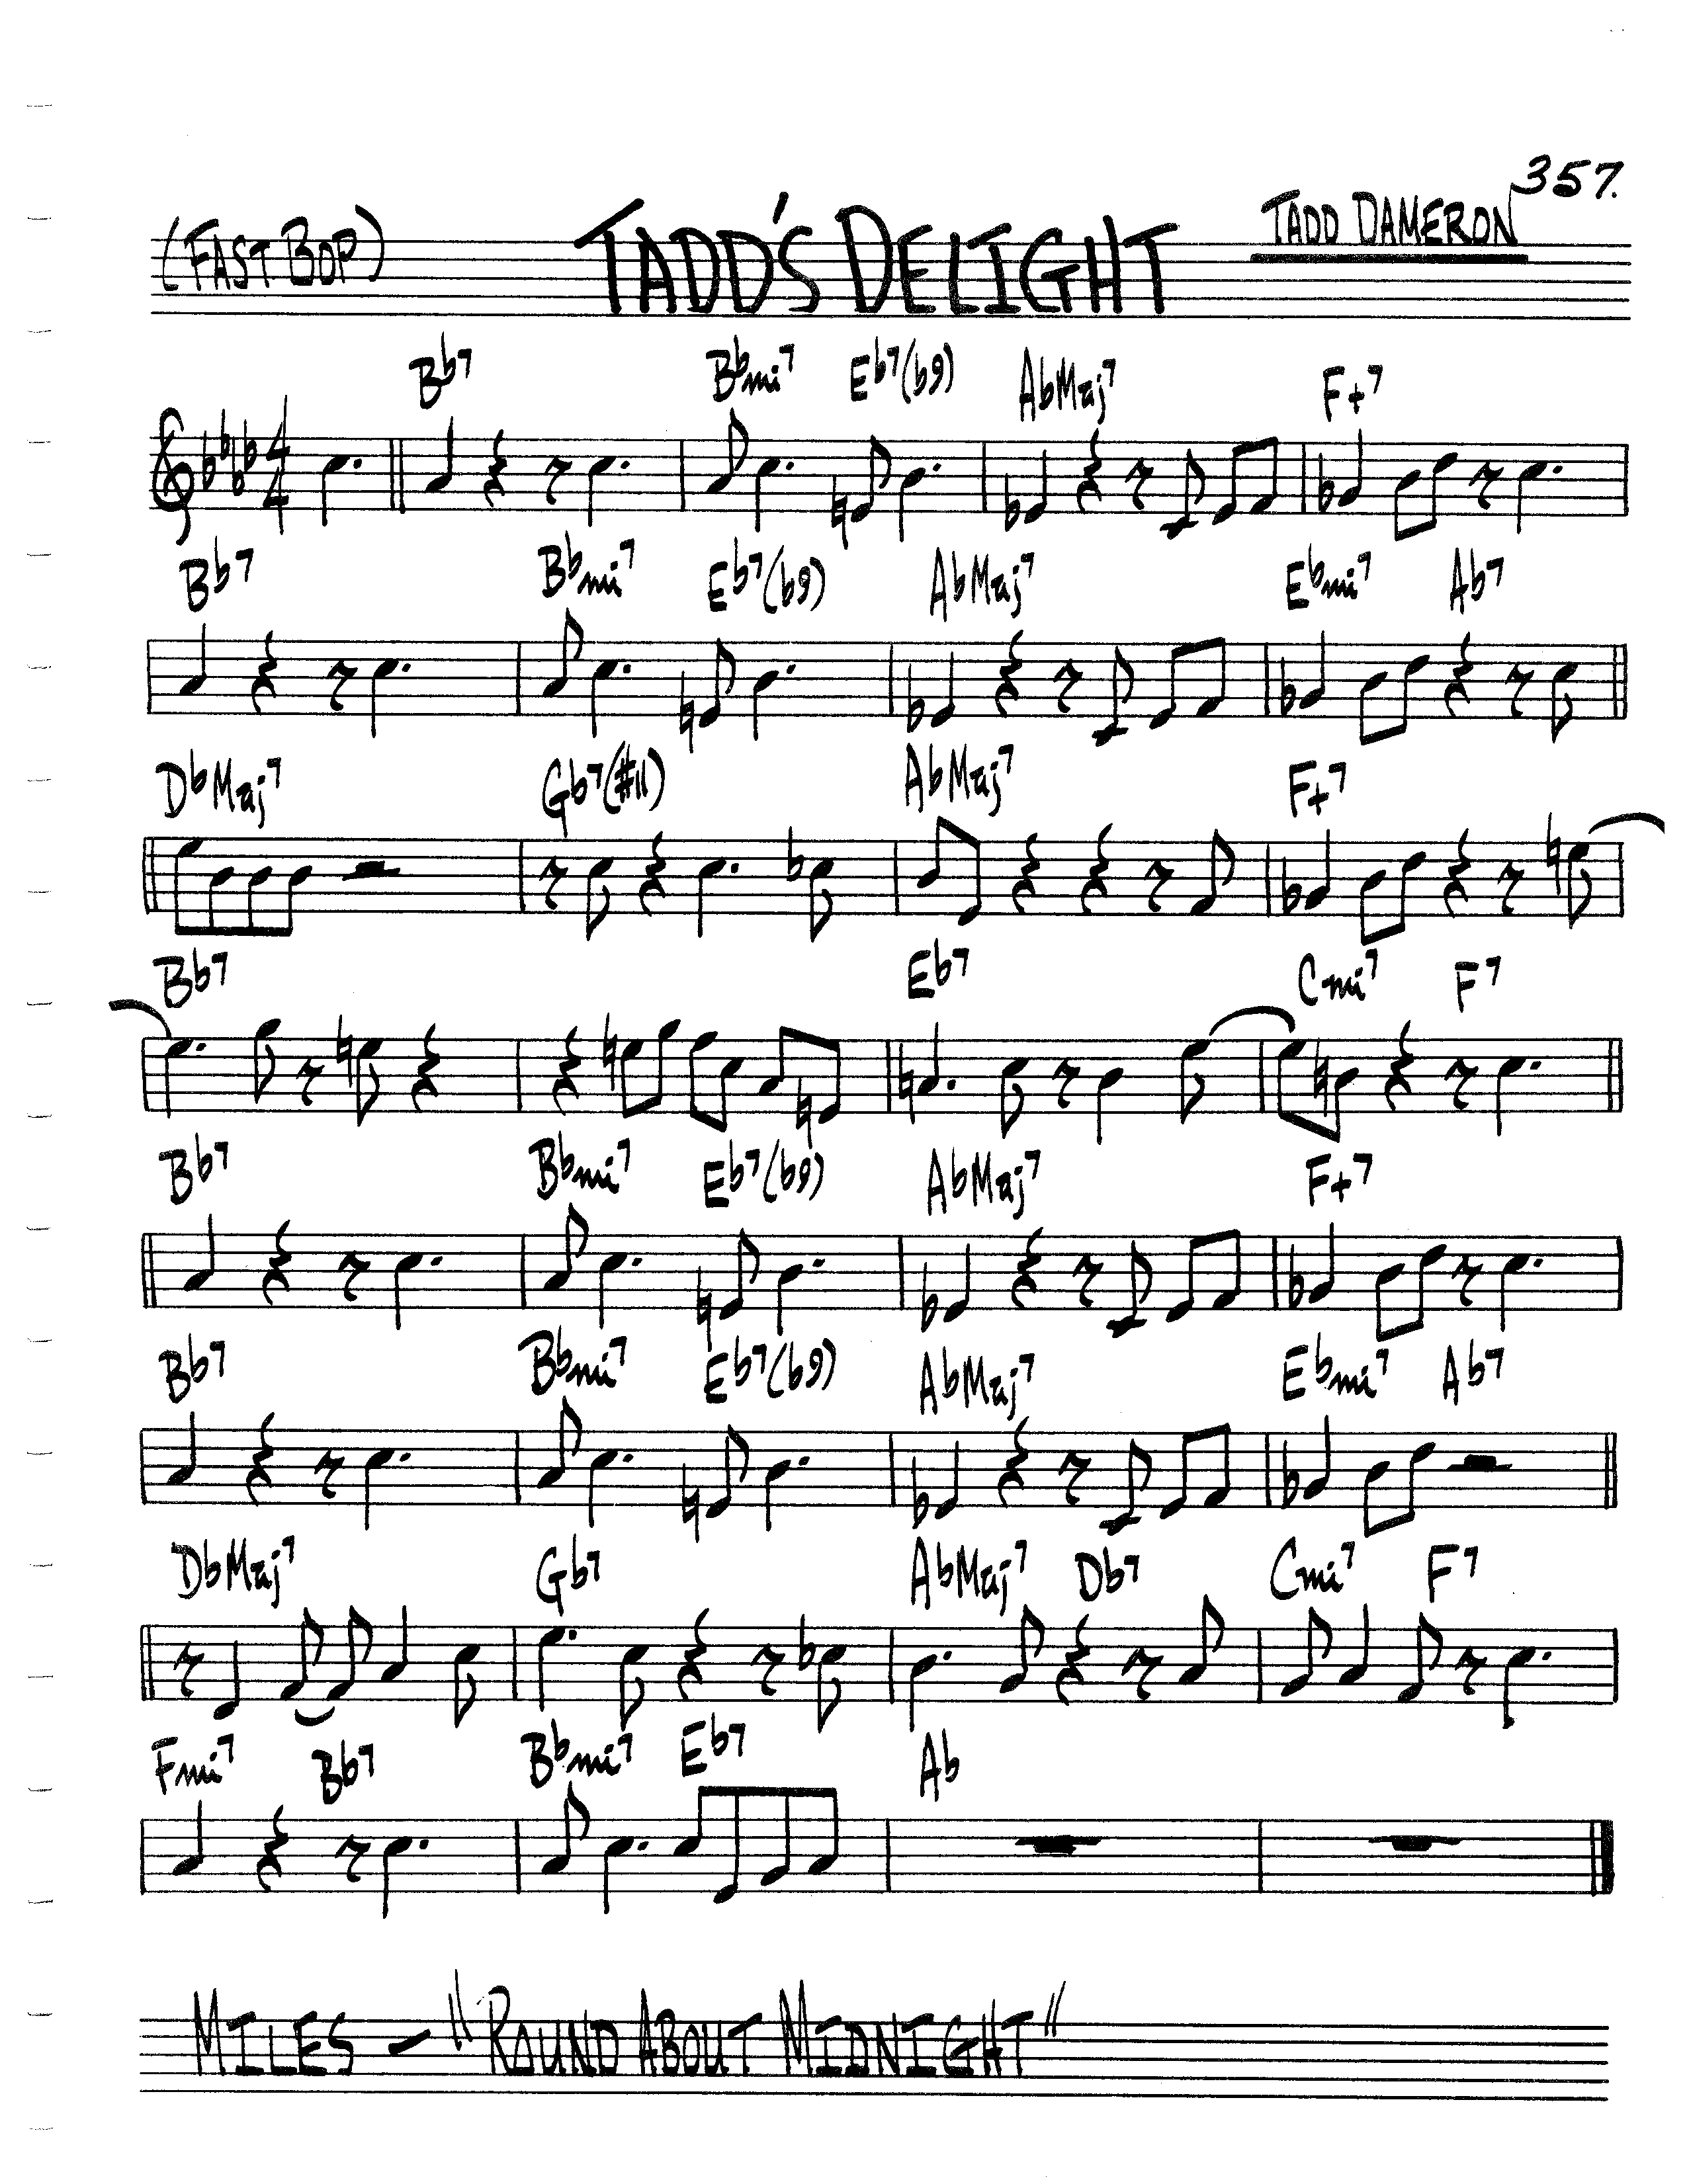 357.
(FAST BOP) TADD'S DELIGHT TADD DAMERON
Bb7 Bbmi7 Eb7(b9) AbMaj7 F+7
4
4
Bb7 Bbmi7 Eb7(b9) AbMaj7 Ebmi7 Ab7
DbMaj7 Gb7(#11) AbMaj7 F+7
Bb7 Eb7 Cmi7 F7
Bb7 Bbmi7 Eb7(b9) AbMaj7 F+7
Bb7 Bbmi7 Eb7(b9) AbMaj7 Ebmi7 Ab7
DbMaj7 Gb7 AbMaj7 Db7 Cmi7 F7
Fmi7 Bb7 Bbmi7 Eb7 Ab
MILES - "ROUND ABOUT MIDNIGHT"